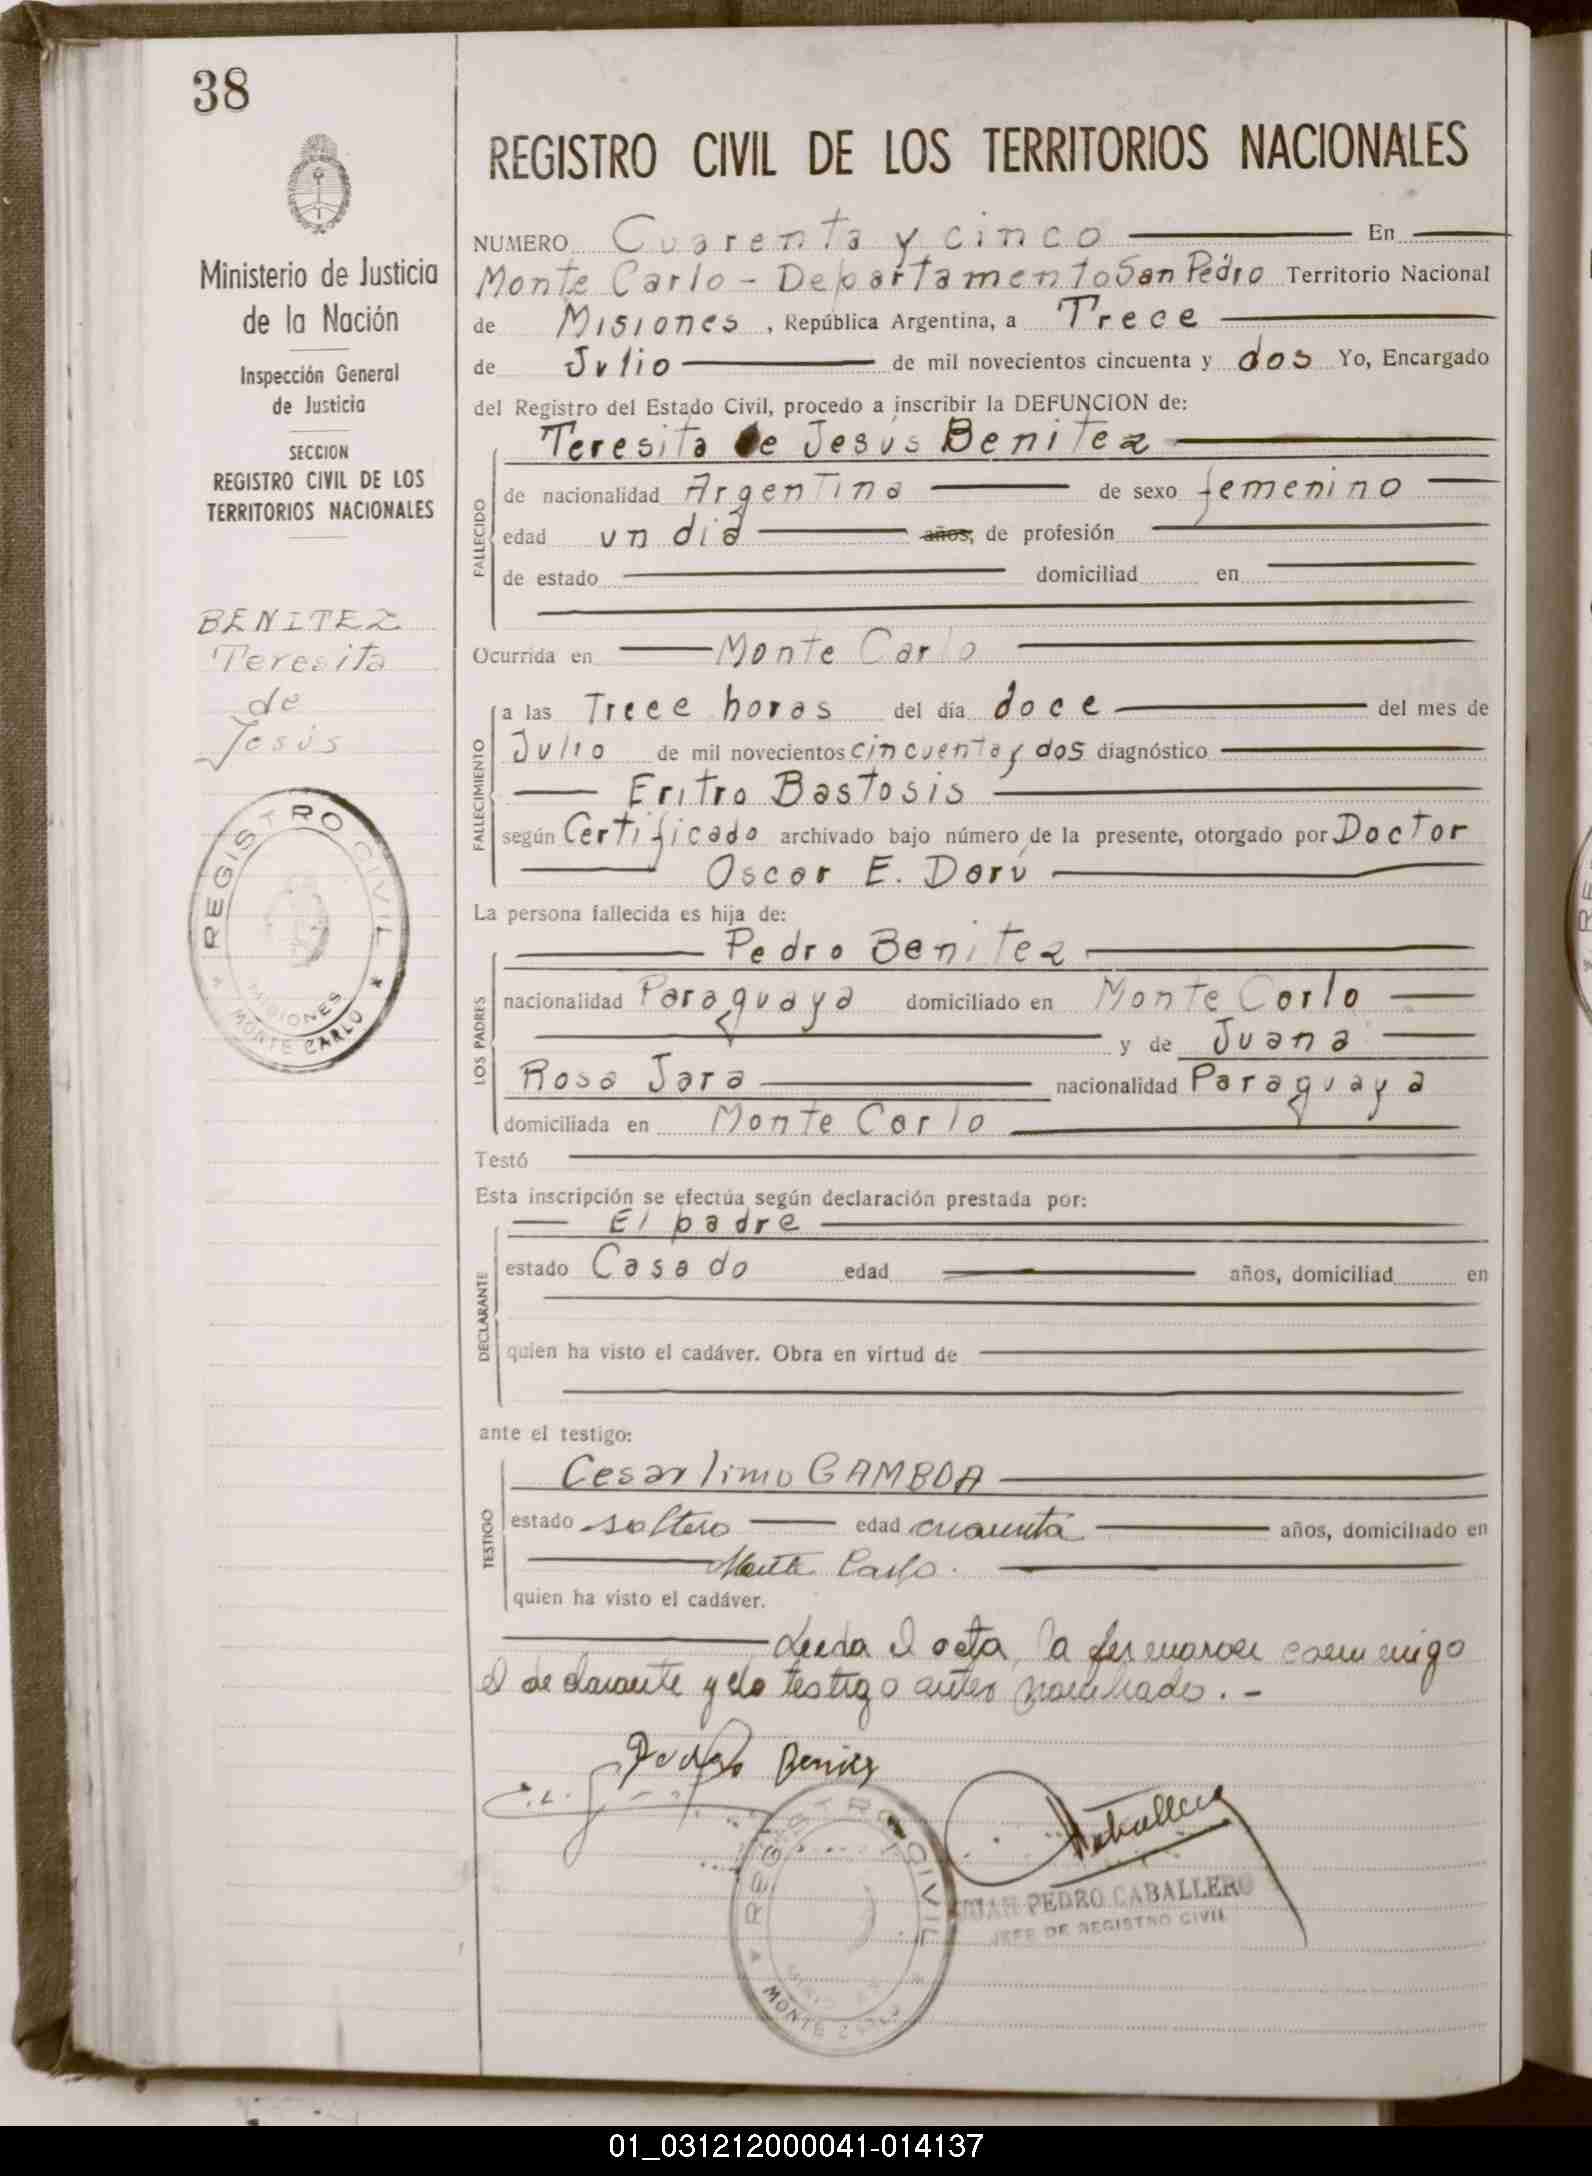 38
REGISTRO CIVIL DE LOS TERRITORIOS NACIONALES
Ministerio de Justicia
de la Nación
Inspección General
de Justicia
SECCION
REGISTRO CIVIL DE LOS
TERRITORIOS NACIONALES
BENITEZ
Teresita
de
Jesús
REGISTRO CIVIL
MISIONES
MONTE CARLO
NUMERO Cuarenta y cinco En
Monte Carlo - Departamento San Pedro Territorio Nacional
de Misiones, República Argentina, a Trece
de Julio de mil novecientos cincuenta y dos Yo, Encargado
del Registro del Estado Civil, procedo a inscribir la DEFUNCION de:
Teresita de Jesús Benitez
FALLECIDO
de nacionalidad Argentina de sexo femenino
edad un día años, de profesión
de estado domiciliad en
Ocurrida en Monte Carlo
FALLECIMIENTO
a las Trece horas del día doce del mes de
Julio de mil novecientos cincuenta y dos diagnóstico
Eritro Bastosis
según Certificado archivado bajo número de la presente, otorgado por Doctor
Oscar E. Darú
La persona fallecida es hija de:
LOS PADRES
Pedro Benitez
nacionalidad Paraguaya domiciliado en Monte Carlo
y de Juana
Rosa Jara nacionalidad Paraguaya
domiciliada en Monte Carlo
Testó
Esta inscripción se efectúa según declaración prestada por:
El padre
DECLARANTE
estado Casado edad años, domiciliad en
quien ha visto el cadáver. Obra en virtud de
ante el testigo:
TESTIGO
Cesar limo GAMBOA
estado soltero edad cuarenta años, domiciliado en
Monte Carlo.
quien ha visto el cadáver.
Leida el acta, la firmaron conmigo
el declarante y el testigo antes nombrado. -
Pedro Benitez
REGISTRO CIVIL
MONTE CARLO
JUAN PEDRO CABALLERO
JEFE DE REGISTRO CIVIL
01_031212000041-014137